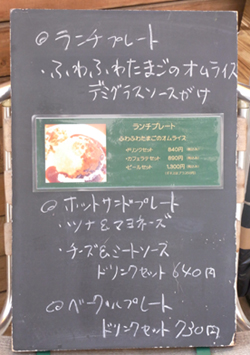 ◎ ランチプレート
・ふわふわたまごのオムライス
デミグラスソースがけ
ランチプレート
ふわふわたまごのオムライス
・ドリンクセット 840円
・カフェラテセット 890円
・ビールセット 1,300円
◎ ホットサンドプレート
・ツナ&マヨネーズ
・チーズ&ミートソース
ドリンクセット 640円
◎ ベーグルプレート
ドリンクセット 730円